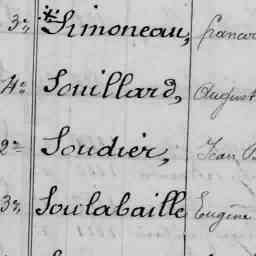 3: Simoneau, francoi
4: Souillard, August
2: Soudier, Jean B
3: Soulabaille Eugène